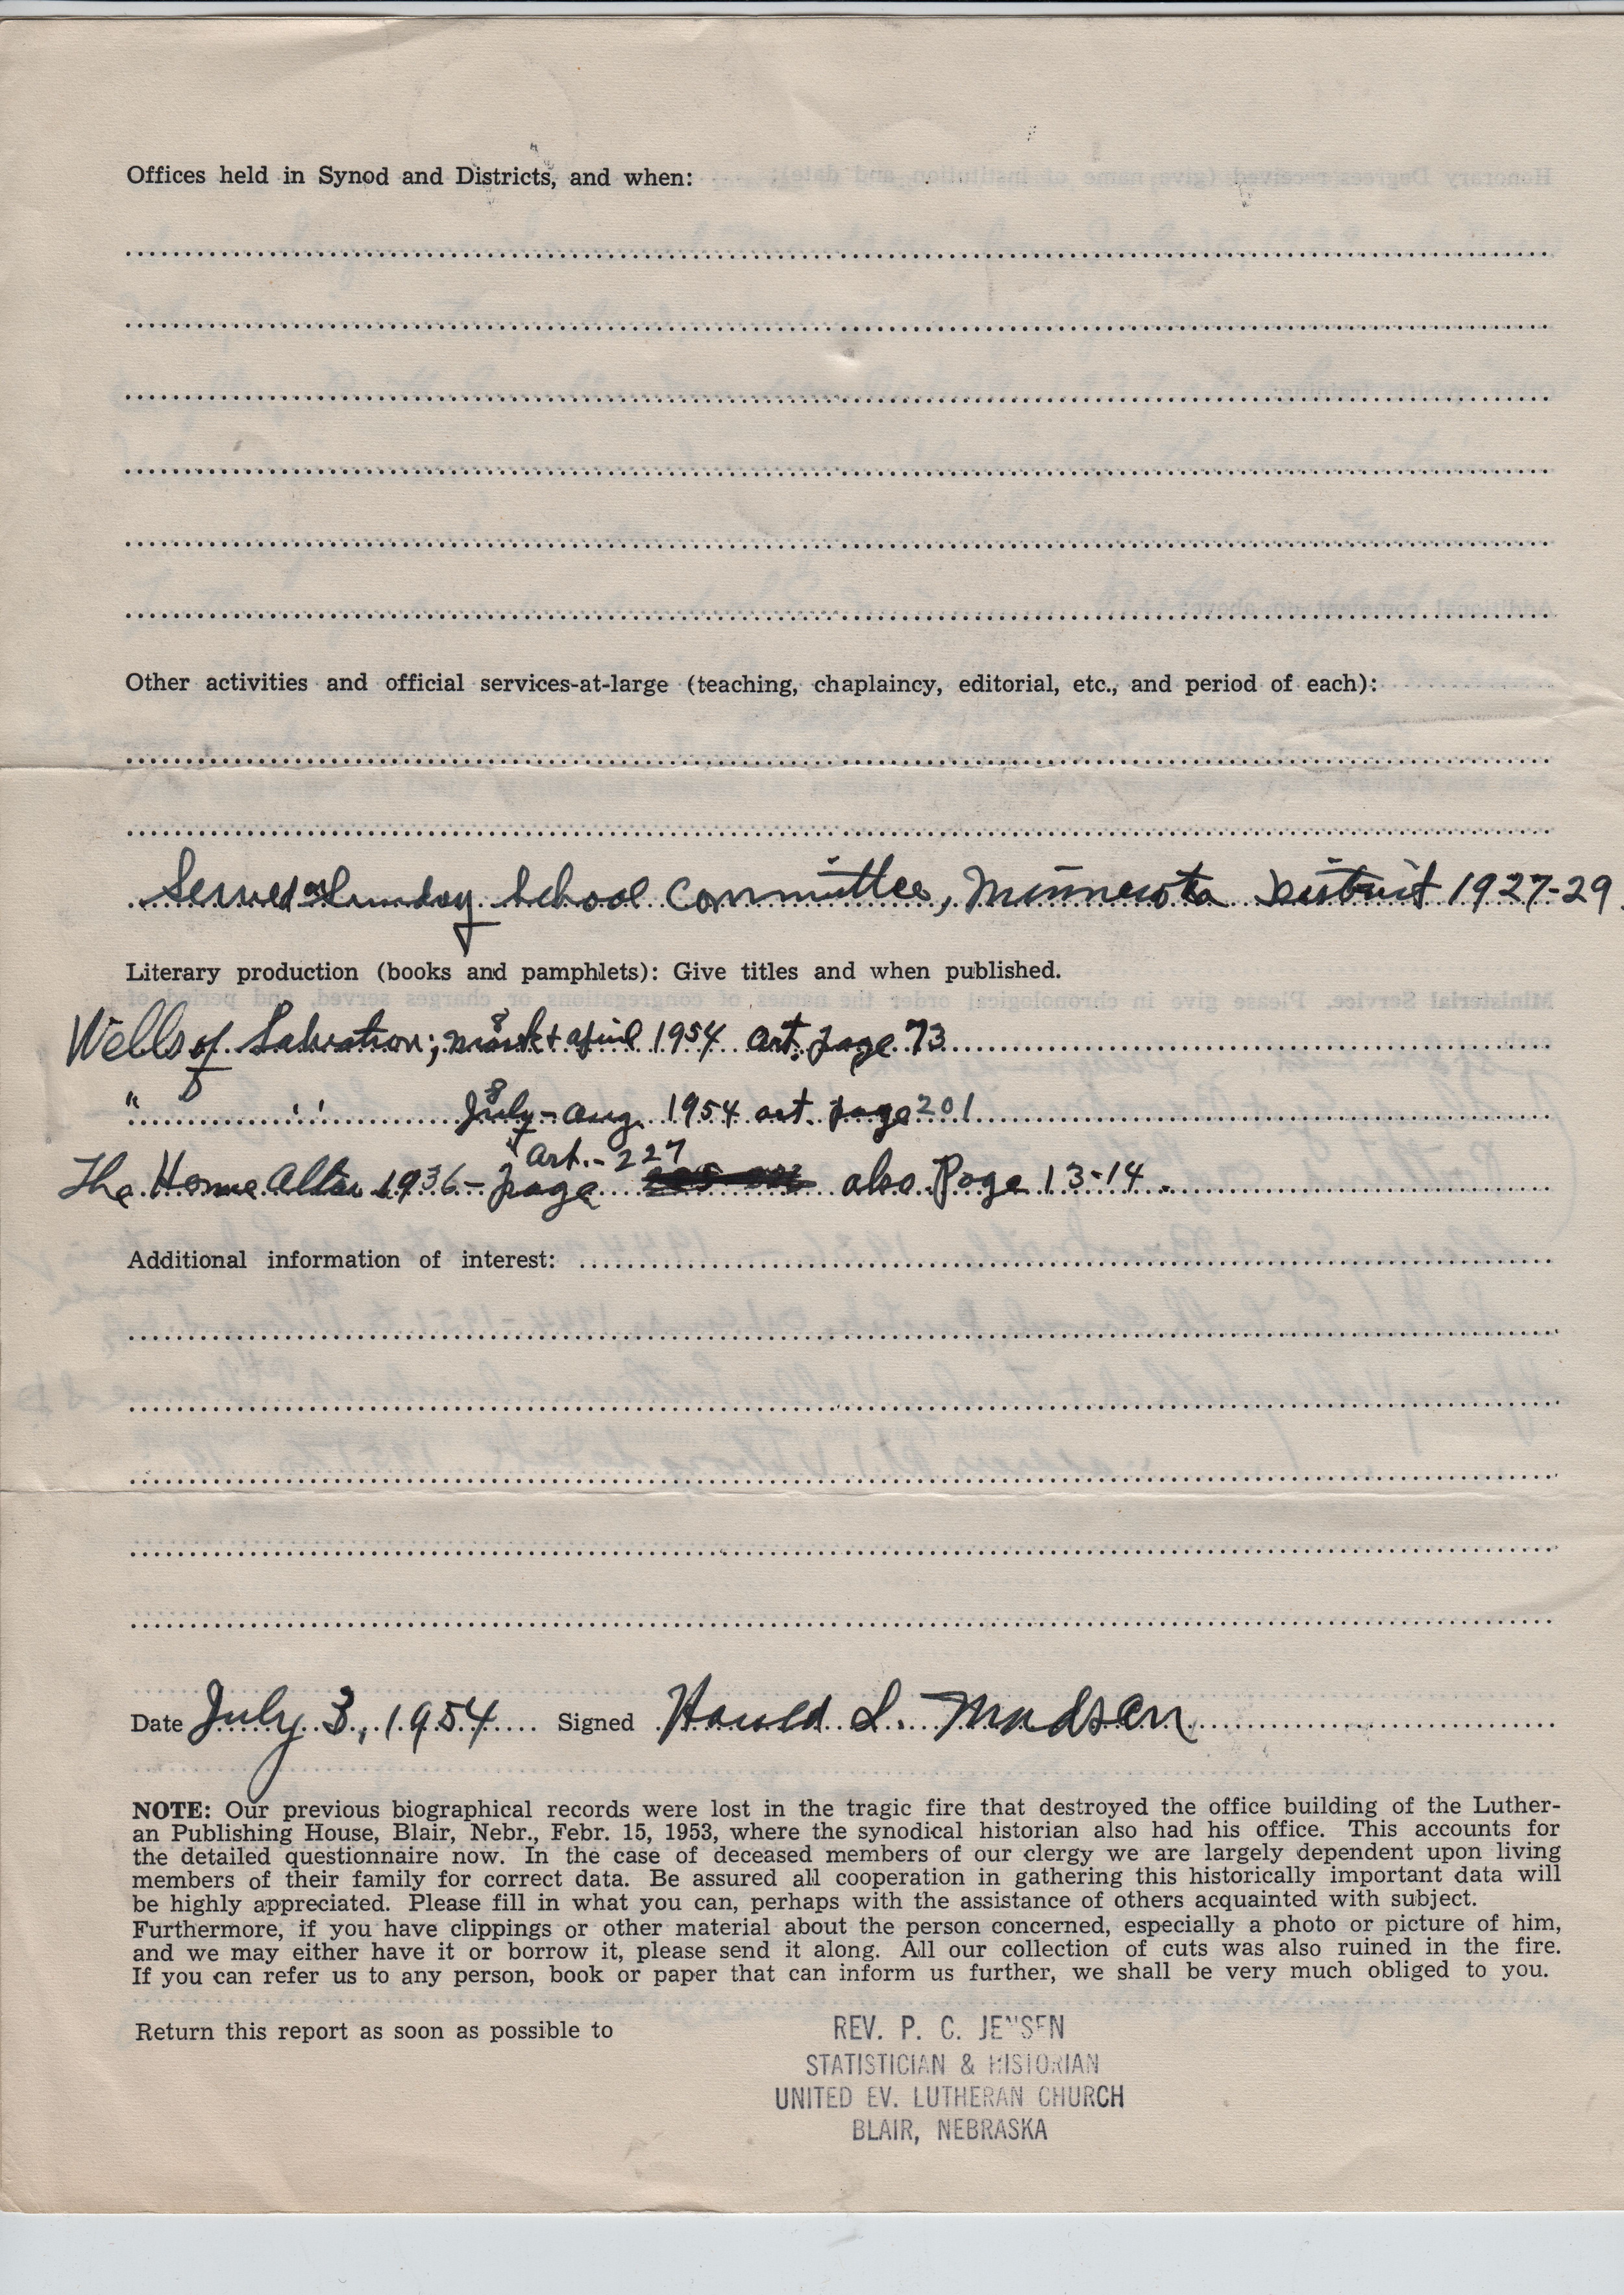 Offices held in Synod and Districts, and when:
Other activities and official services-at-large (teaching, chaplaincy, editorial, etc., and period of each):
Served on Sunday School Committee, Minnesota District 1927-29.
Literary production (books and pamphlets): Give titles and when published.
Wells of Salvation; March & April 1954 art. page 73
" " July - Aug. 1954 art. page 201
The Home Altar 1936 - page Art. - 227 also Page 13-14.
Additional information of interest:
Date July 3, 1954 Signed Harold L. Madsen
NOTE: Our previous biographical records were lost in the tragic fire that destroyed the office building of the Luther-
an Publishing House, Blair, Nebr., Febr. 15, 1953, where the synodical historian also had his office. This accounts for
the detailed questionnaire now. In the case of deceased members of our clergy we are largely dependent upon living
members of their family for correct data. Be assured all cooperation in gathering this historically important data will
be highly appreciated. Please fill in what you can, perhaps with the assistance of others acquainted with subject.
Furthermore, if you have clippings or other material about the person concerned, especially a photo or picture of him,
and we may either have it or borrow it, please send it along. All our collection of cuts was also ruined in the fire.
If you can refer us to any person, book or paper that can inform us further, we shall be very much obliged to you.
Return this report as soon as possible to
REV. P. C. JENSEN
STATISTICIAN & HISTORIAN
UNITED EV. LUTHERAN CHURCH
BLAIR, NEBRASKA